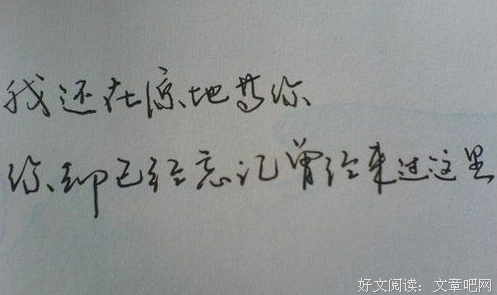 我还在原地等你
你却已经忘记曾经来过这里
好文阅读：文章吧网